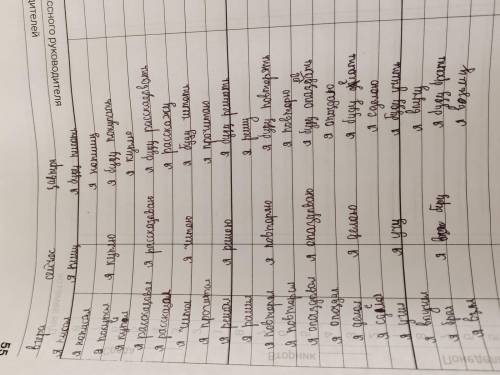 55
ссного руководителя
дителей
вчера сейчас завтра
я писал я пишу я буду писать
я написал я напишу
я покупал я куплю я буду покупать
я купил я куплю
я рассказывал я рассказываю я буду рассказывать
я рассказал я расскажу
я читал я читаю я буду читать
я прочитал я прочитаю
я решал я решаю я буду решать
я решил я решу
я повторял я повторяю я буду повторять
я повторил я повторю
я опаздовал я опаздоваю я буду
я опаздал я опаздаю
я делал я делаю я буду делать
я сделал я сделаю
я учил я учу я буду учить
я выучил я выучу
я брал я беру я буду брать
я взял я возьму
Вторник
Понедел